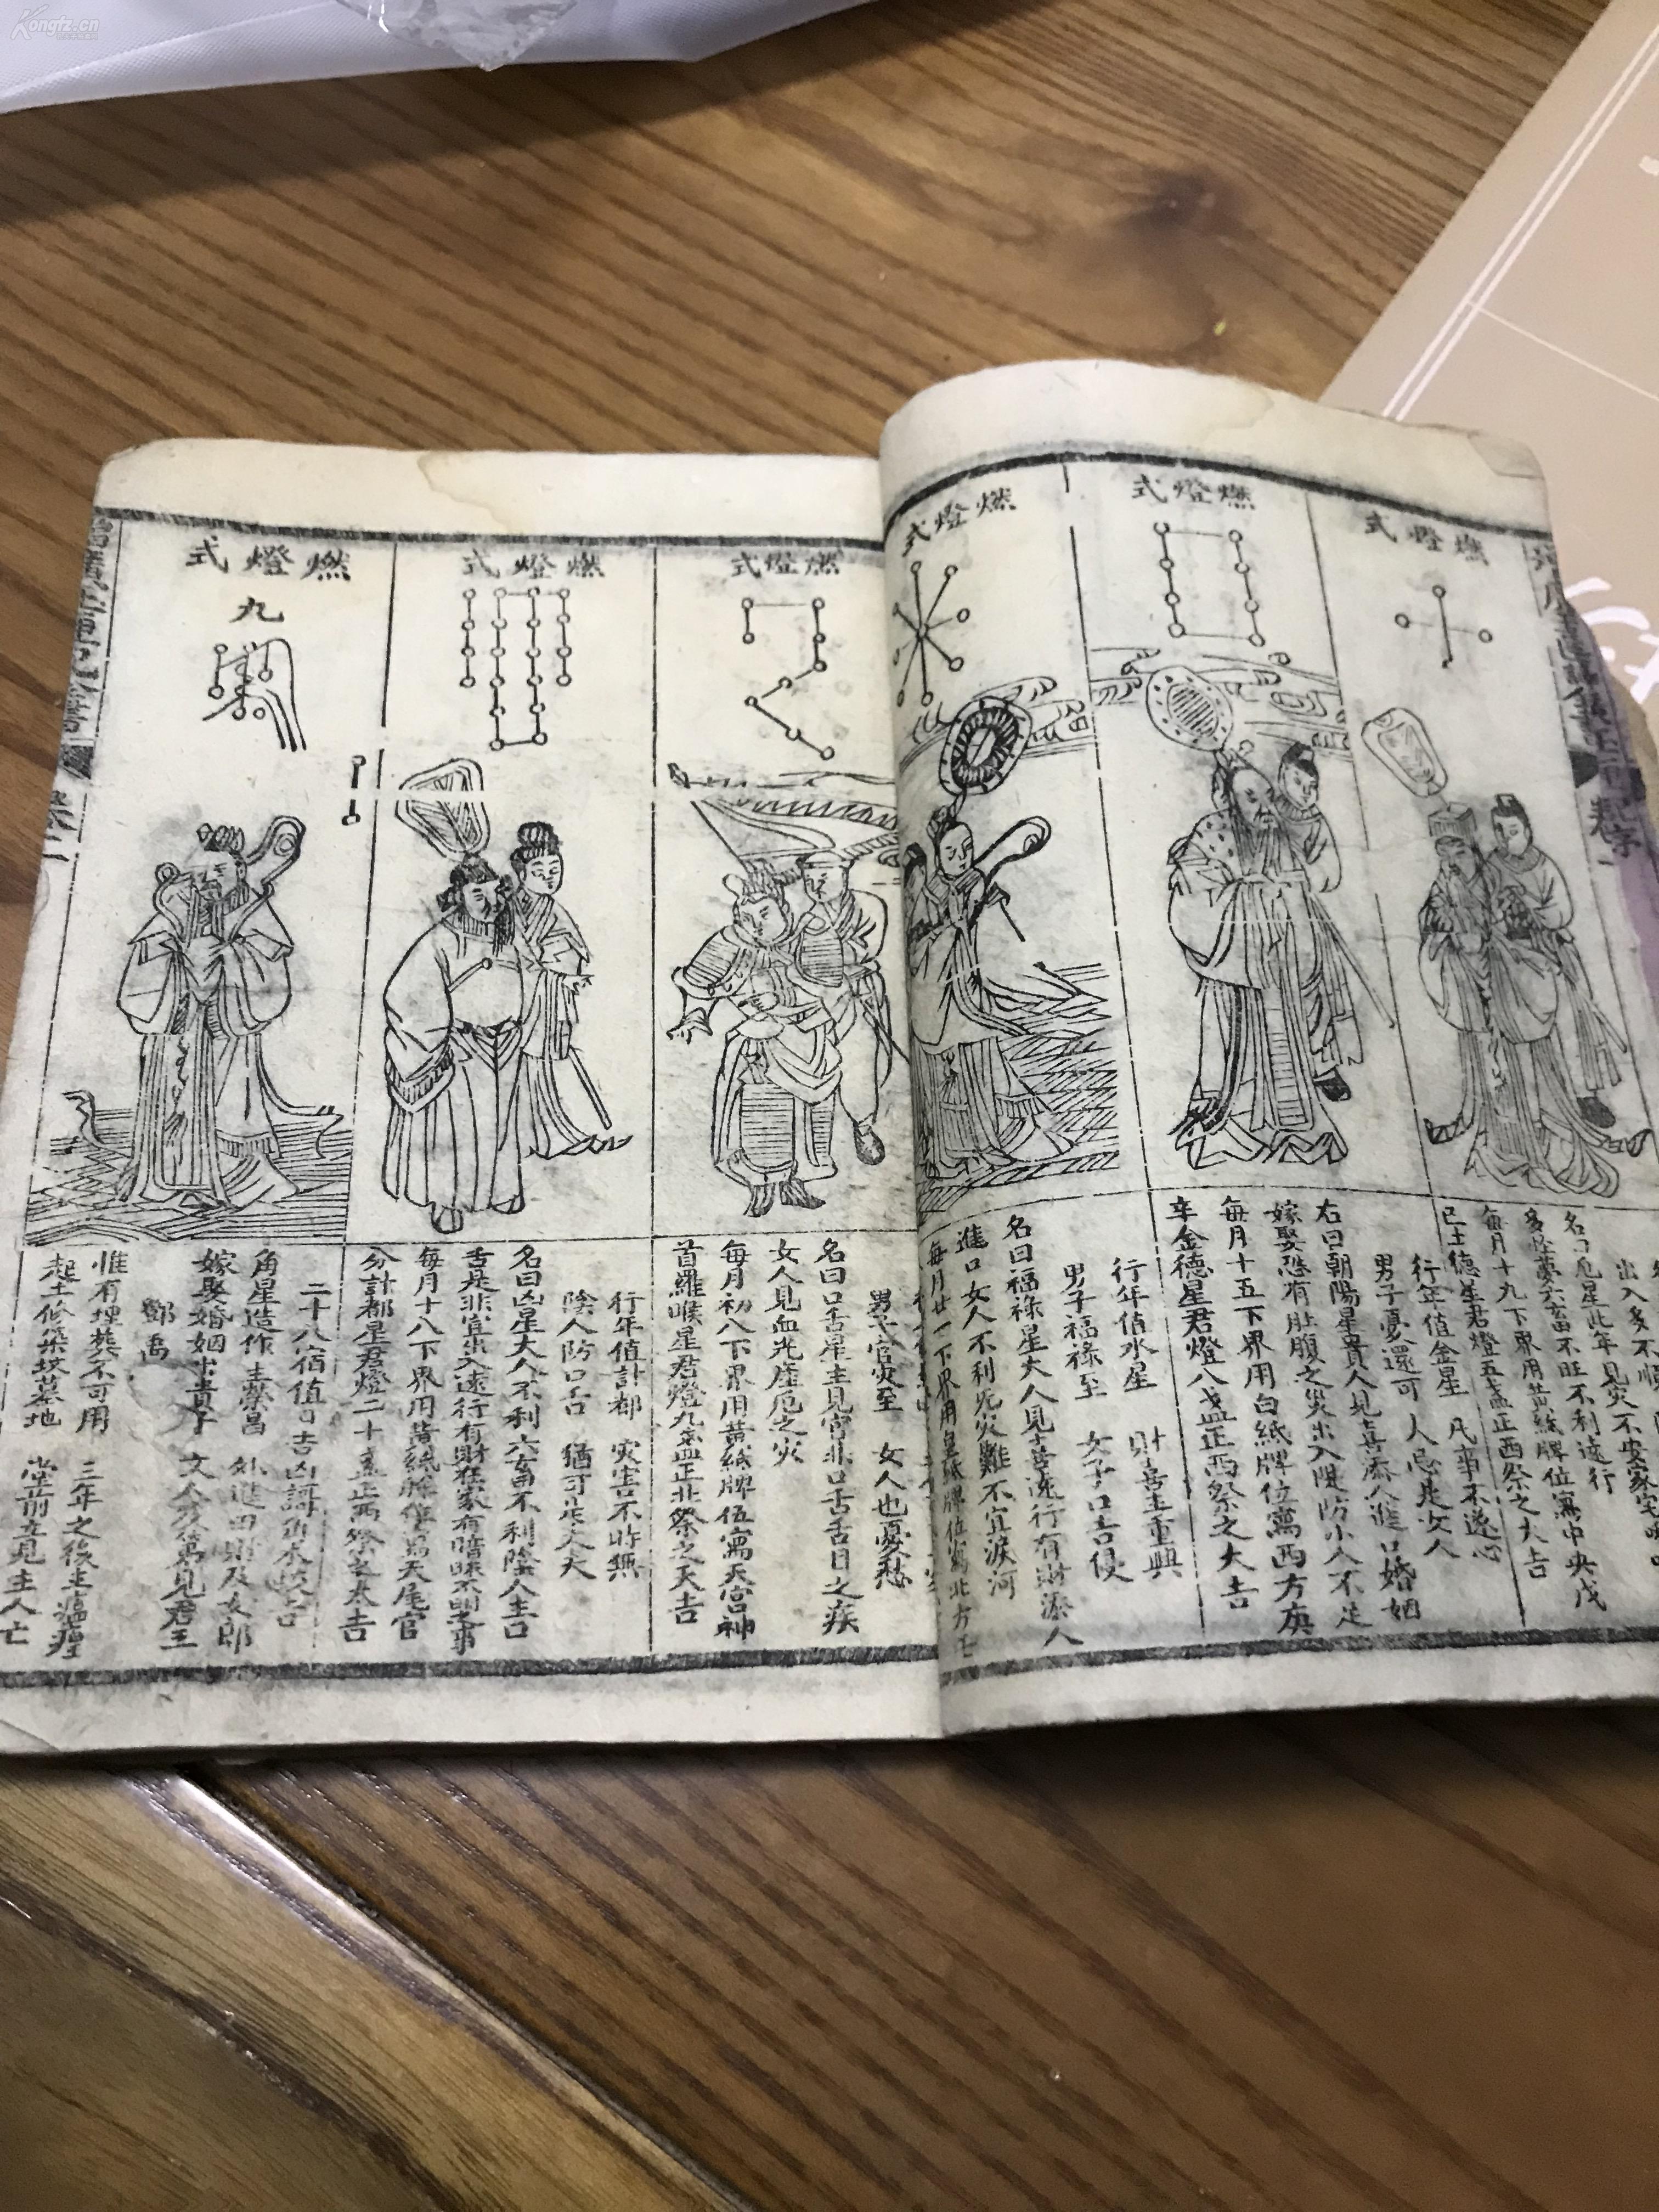 Kongfz.cn
燃燈式
燃燈式
燃燈式
燃燈式
燃燈式
燃燈式
九
出入多不順
名曰厄星此年見災不安家宅
多怪夢六畜不旺不利遠行
每月十九下界用黃紙牌位寫中央戊
己土德星君燈五盞正西祭之大吉
行年值金星 凡事不遂心
男子憂還可 人忌是女人
右曰朝陽星貴人見喜添人進口婚姻
嫁娶恐有肚腹之災出入隄防小人不足
每月十五下界用白紙牌位寫西方庚
辛金德星君燈八盞正西祭之大吉
行年值水星 財喜主重興
男子福祿至 女子口舌侵
名曰福祿星大人見喜遠行有財添人
進口女人不利死災難不宜淚河
每月廿一下界用皂紙牌位寫北方壬
男子官灾至 女人也憂愁
名曰口舌星主見官非口舌舌目之疾
女人見血光産厄之灾
每月初八下界用黃紙牌位寫天宮神
首羅睺星君燈九盞正北祭之大吉
行年值計都 災害不時無
陰人防口舌 猶可是丈夫
名曰凶星大人不利六畜不利陰人主口
舌是非宜出入遠行有財在家有暗昧不明之事
每月十八下界用黃紙牌位寫天尾宮
分計都星君燈二十盞正西祭之太吉
二十八宿值日吉凶
角星造作主榮昌 外進田財及女郎
嫁娶婚姻出貴子 文人及第見君王
鄧禹
惟有埋葬不可用 三年之後主瘟𤶊
起土修築坟墓地 堂前立見主人亡